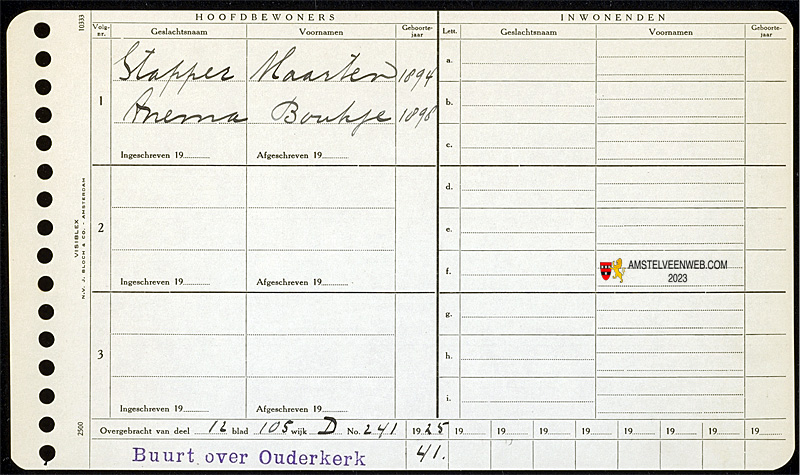 10333
HOOFDBEWONERS
INWONENDEN
Volg-nr. Geslachtsnaam Voornamen Geboorte-jaar
Lett. Geslachtsnaam Voornamen Geboorte-jaar
1
Stapper Maarten 1894
Anema Boukje 1898
Ingeschreven 19 Afgeschreven 19
2
Ingeschreven 19 Afgeschreven 19
3
Ingeschreven 19 Afgeschreven 19
a.
b.
c.
d.
e.
f.
g.
h.
i.
AMSTELVEENWEB.COM
2023
VISIBLEX
N.V. J. BLOCH & CO. - AMSTERDAM
2500
Overgebracht van deel 12 blad 105 wijk D No. 241 1925 19 19 19 19 19 19 19 19
Buurt over Ouderkerk 41.